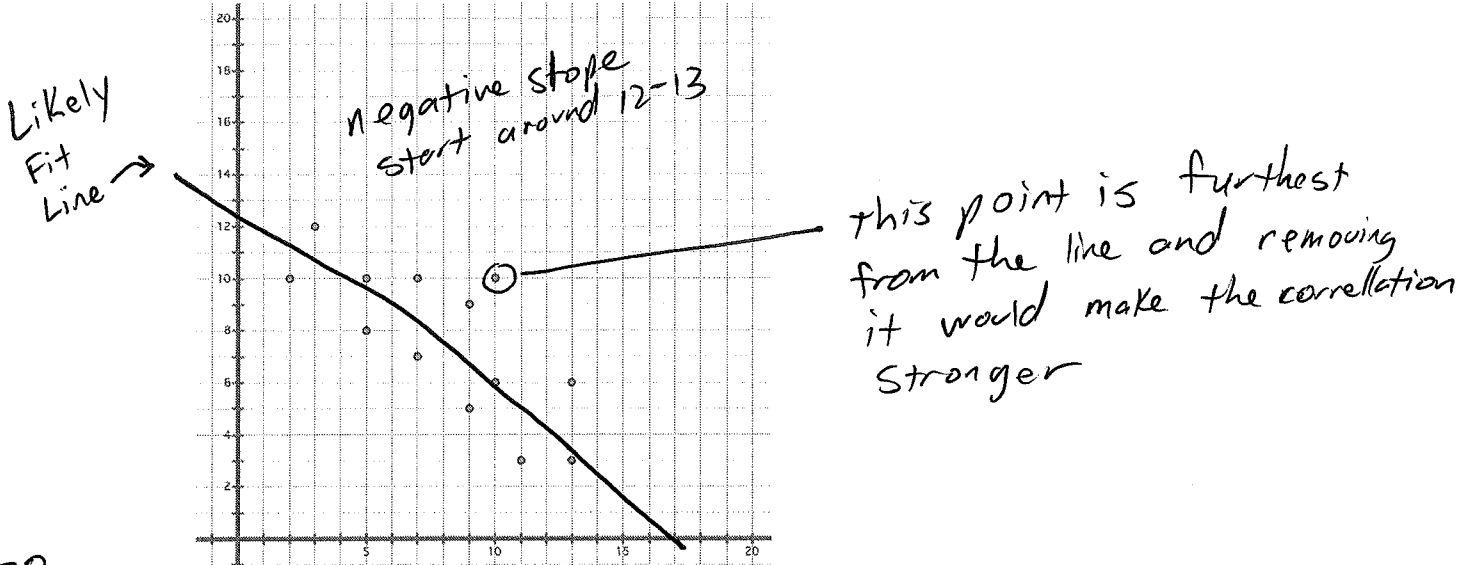 Likely
Fit
Line
negative slope
start around 12-13
this point is furthest
from the line and removing
it would make the correllation
stronger
20
18
16
14
12
10
8
6
4
2
5
10
15
20